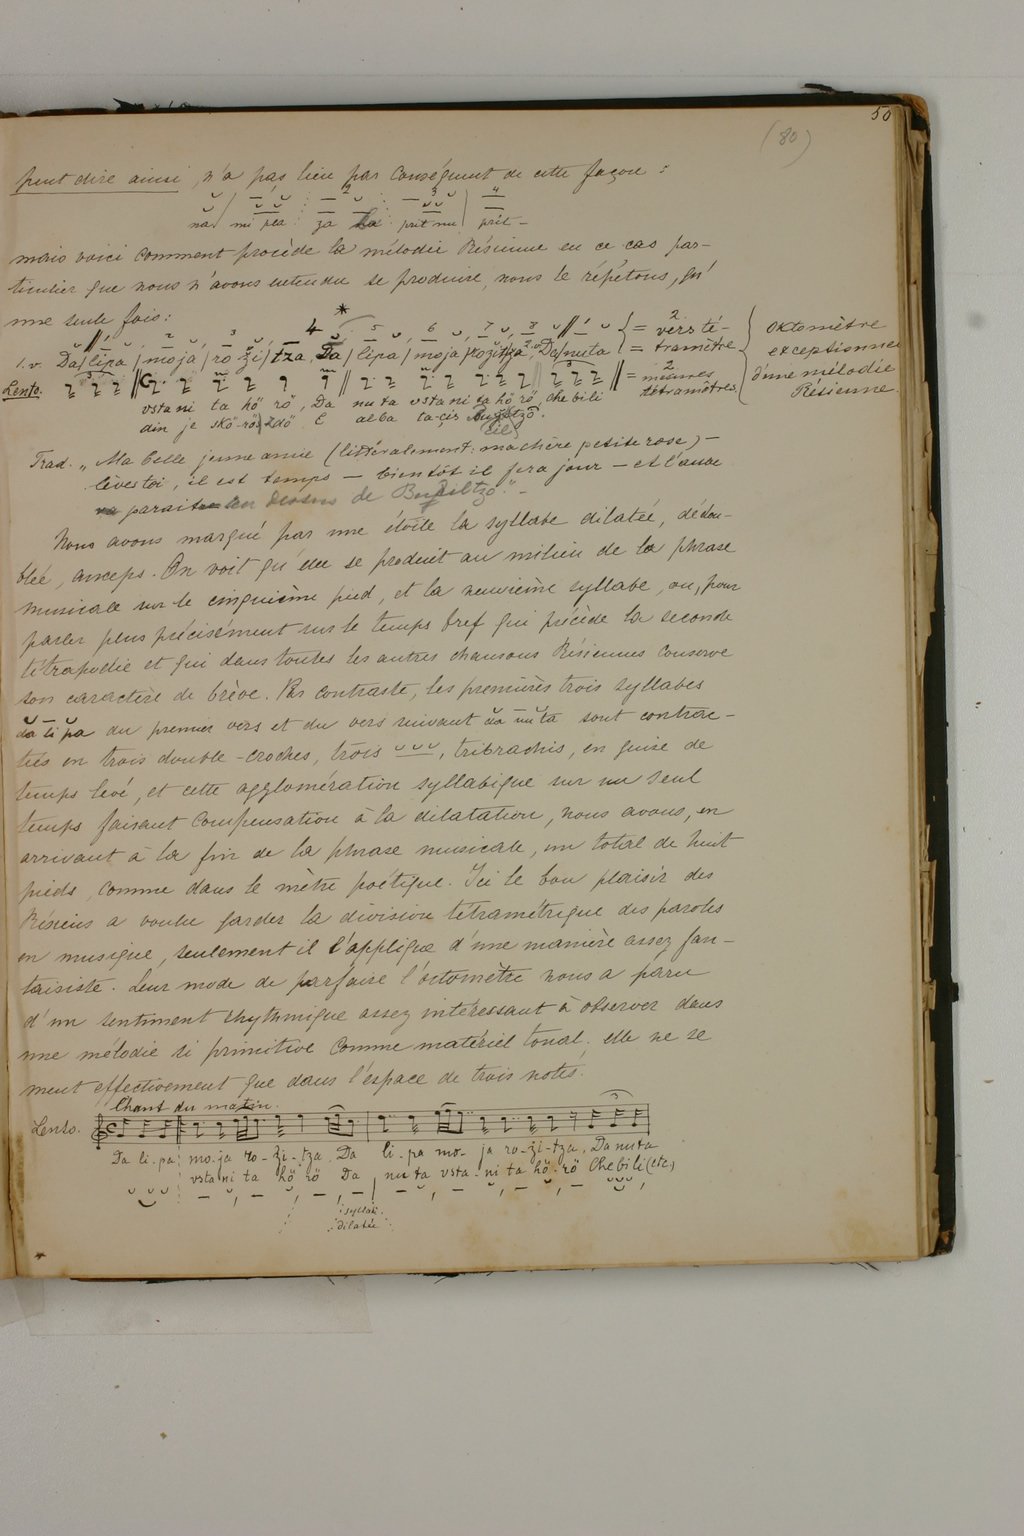 50
(80)
peut dire ainsi, n'a pas lieu par conséquent de cette façon :
2 3 4
na mi pea za la prit nu prit -
mais voici comment procède la mélodie Résienne en ce cas par-
ticulier que nous n'avons entendu se produire, nous le répétons, qu'
une seule fois :
1 2 3 4 * 5 6 7 8 1
1. v. Da/lipa/moja/rozi/tza, Da/lipa/moja/rozitza, 2. v. Da/nuta
= 2 vers té-
= tramètre
Oktomètre
exceptionnel
d'une mélodie
Résienne
Lento. 3 3
= 2 mesures
tétramètres
vsta ni ta hö rö, Da nu ta vsta ni ta hö rö che bili
din je skö-rö zdö e alba ta-çis
Trad. „Ma belle jeune amie (littéralement : ma chère petite rose) –
lèves toi, il est temps – bientôt il fera jour – et l'aube
va parait au dessus de
Nous avons marqué par une étoile la syllabe dilatée, dédou-
blée, anceps. On voit qu'elle se produit au milieu de la phrase
musicale sur le cinquième pied, et la neuvième syllabe, ou, pour
parler plus précisément sur le temps bref qui précède la seconde
tétrapodie et qui dans toutes les autres chansons Résiennes conserve
son caractère de brève. Par contraste, les premières trois syllabes
da li pa du premier vers et du vers suivant da nu ta sont contrac-
tées en trois double-croches, trois ˘ ˘ ˘, tribrachis, en guise de
temps levé, et cette agglomération syllabique sur un seul
temps faisant compensation à la dilatation, nous avons, en
arrivant à la fin de la phrase musicale, un total de huit
pieds, comme dans le mètre poétique. Ici le bon plaisir des
Résiens a voulu garder la division tétramétrique des paroles
en musique, seulement il l'applique d'une manière assez fan-
taisiste. Leur mode de parfaire l'octomètre nous a paru
d'un sentiment rhythmique assez intéressant à observer dans
une mélodie si primitive comme matériel tonal. elle ne se
meut effectivement que dans l'espace de trois notes.
Chant du matin.
Lento. 3
Da li-pa mo-ja ro-zi-tza Da li-pa mo-ja ro-zi-tza, Da nuta
vsta ni ta hö rö Da nu ta vsta-ni ta hö-rö Che bi li (etc)
syllab.
dilatée